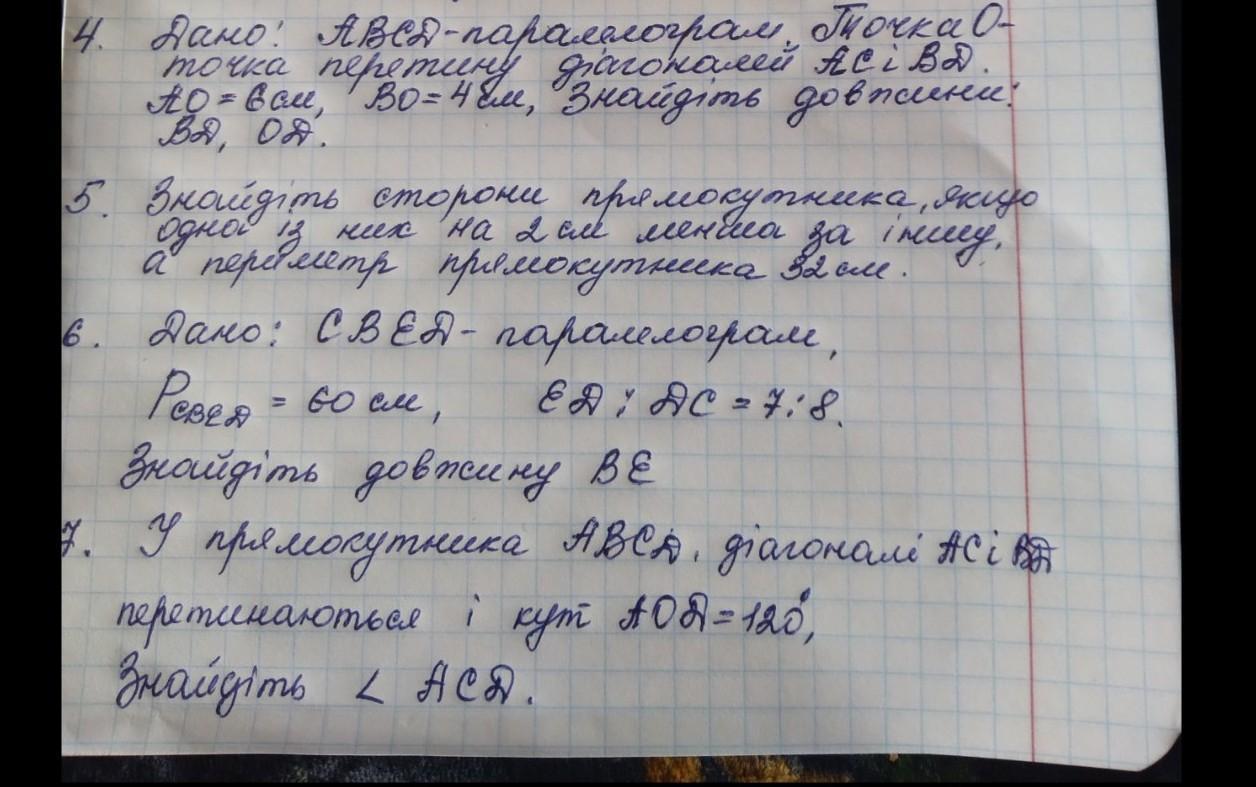 4. Дано: ABCD-паралелограм. Точка О-
точка перетину діагоналей AC і BD.
AO = 6 см, BO = 4 см, Знайдіть довжини:
BD, OD.
5. Знайдіть сторони прямокутника, якщо
одна із них на 2 см менша за іншу,
а периметр прямокутника 32 см.
6. Дано: CBED- паралелограм,
P_CBED = 60 см, ED : DC = 7:8.
Знайдіть довжину BE
7. У прямокутника ABCD, діагоналі AC і BD
перетинаються і кут AOD = 120°,
Знайдіть < ACD.